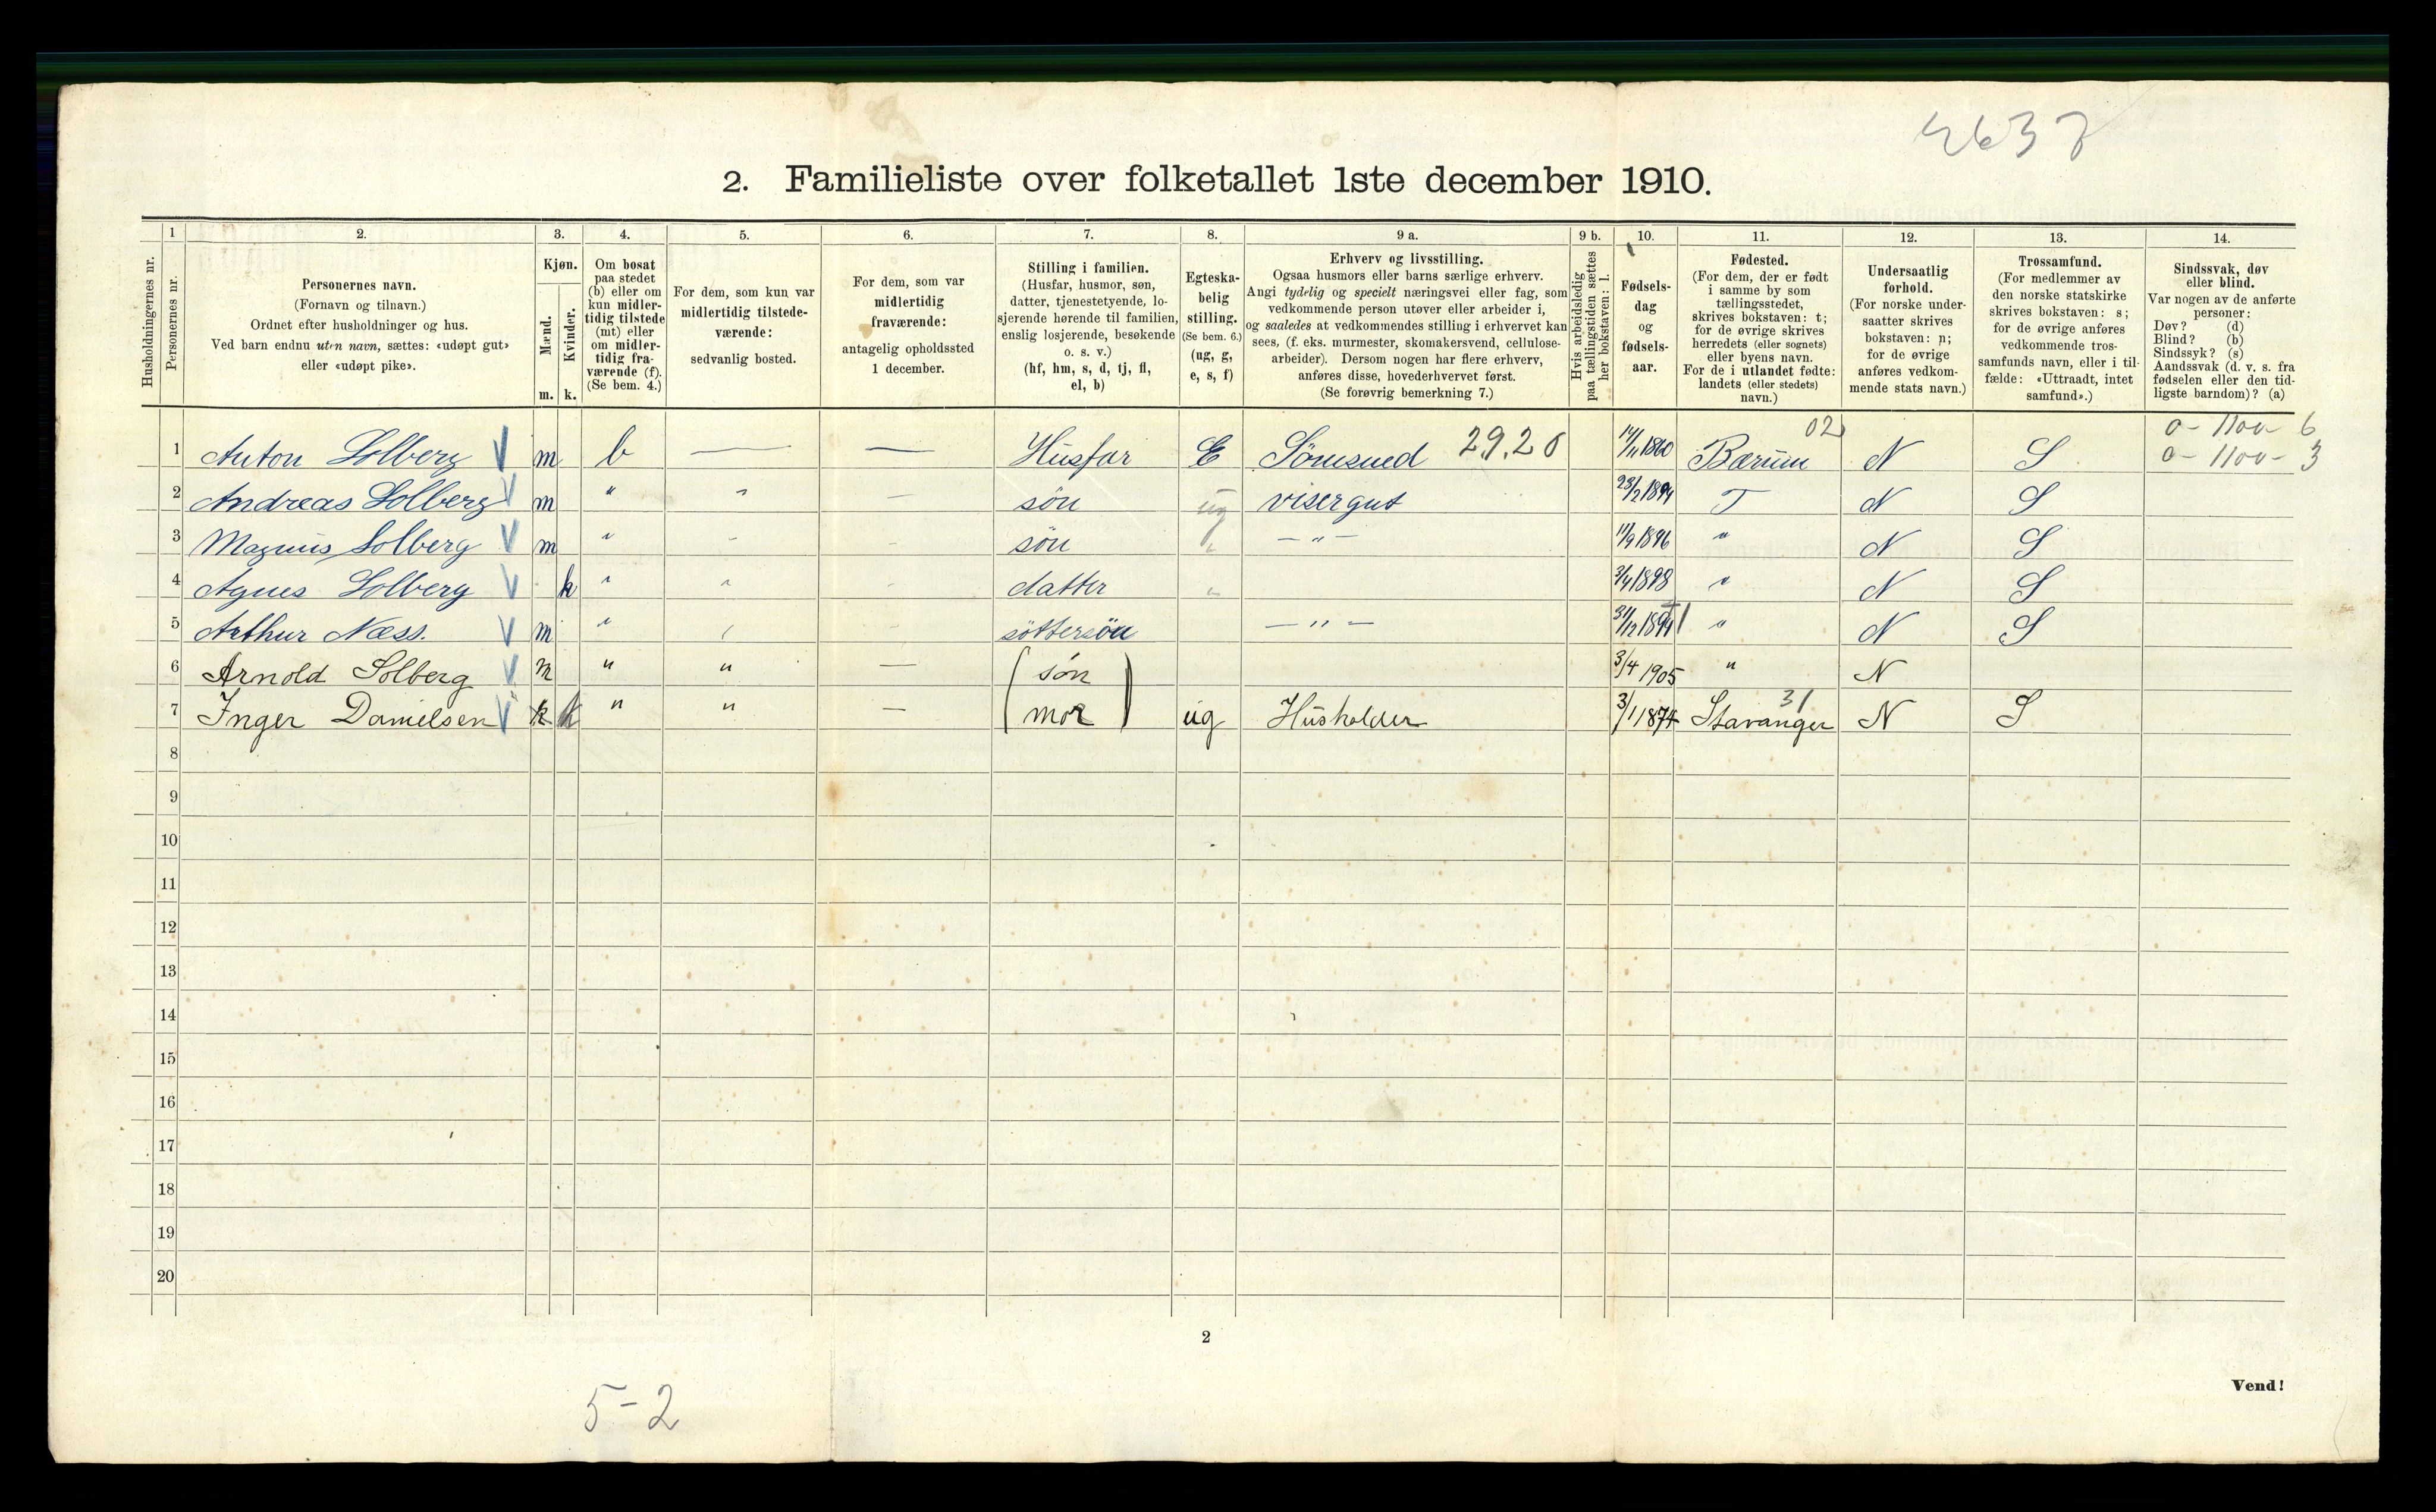 2637
2. Familieliste over folketallet 1ste december 1910.
Husholdningernes nr.
1
Personernes nr.
2.
Personernes navn.
(Fornavn og tilnavn.)
Ordnet efter husholdninger og hus.
Ved barn endnu uten navn, sættes: «udøpt gut»
eller «udøpt pike».
3.
Kjøn.
Mænd.
Kvinder.
m. k.
4.
Om bosat
paa stedet
(b) eller om
kun midler-
tidig tilstede
(mt) eller
om midler-
tidig fra-
værende (f).
(Se bem. 4.)
5.
For dem, som kun var
midlertidig tilstede-
værende:
sedvanlig bosted.
6.
For dem, som var
midlertidig
fraværende:
antagelig opholdssted
1 december.
7.
Stilling i familien.
(Husfar, husmor, søn,
datter, tjenestetyende, lo-
sjerende hørende til familien,
enslig losjerende, besøkende
o. s. v.)
(hf, hm, s, d, tj, fl,
el, b)
8.
Egteska-
belig
stilling.
(Se bem. 6.)
(ug, g,
e, s, f)
9 a.
Erhverv og livsstilling.
Ogsaa husmors eller barns særlige erhverv.
Angi tydelig og specielt næringsvei eller fag, som
vedkommende person utøver eller arbeider i,
og saaledes at vedkommendes stilling i erhvervet kan
sees, (f. eks. murmester, skomakersvend, cellulose-
arbeider). Dersom nogen har flere erhverv,
anføres disse, hovederhvervet først.
(Se forøvrig bemerkning 7.)
9 b.
Hvis arbeidsledig
paa tællingstiden sættes
her bokstaven: l.
10.
Fødsels-
dag
og
fødsels-
aar.
11.
Fødested.
(For dem, der er født
i samme by som
tællingsstedet,
skrives bokstaven: t;
for de øvrige skrives
herredets (eller sognets)
eller byens navn.
For de i utlandet fødte:
landets (eller stedets)
navn.)
12.
Undersaatlig
forhold.
(For norske under-
saatter skrives
bokstaven: n;
for de øvrige
anføres vedkom-
mende stats navn.)
13.
Trossamfund.
(For medlemmer av
den norske statskirke
skrives bokstaven: s;
for de øvrige anføres
vedkommende tros-
samfunds navn, eller i til-
fælde: «Uttraadt, intet
samfund».)
14.
Sindssvak, døv
eller blind.
Var nogen av de anførte
personer:
Døv? (d)
Blind? (b)
Sindssyk? (s)
Aandssvak (d. v. s. fra
fødselen eller den tid-
ligste barndom)? (a)
02 0 - 1100 - 6
1 Anton Solberg V m b — — Husfar E Sömsmed 29.20 14/11 1860 Bærum N S 0 - 1100 - 3
2 Andreas Solberg V m " " — søn ug visergut 23/2 1894 T N S
3 Magnus Solberg V m " - - søn " — " — 11/9 1896 " N S
4 Agnes Solberg V k " " - datter " 3/4 1898 " N S
5 Arthur Næss. V m " - söttersön — " — 31/12 1894 " N S
6 Arnold Solberg V m " " — (søn) 3/4 1905 " N
31
7 Inger Danielsen V k k " " — (mor) ug Husholder 3/1 1874 Stavanger N S
8
9
10
11
12
13
14
15
16
17
18
19
20
2
Vend!
5-2